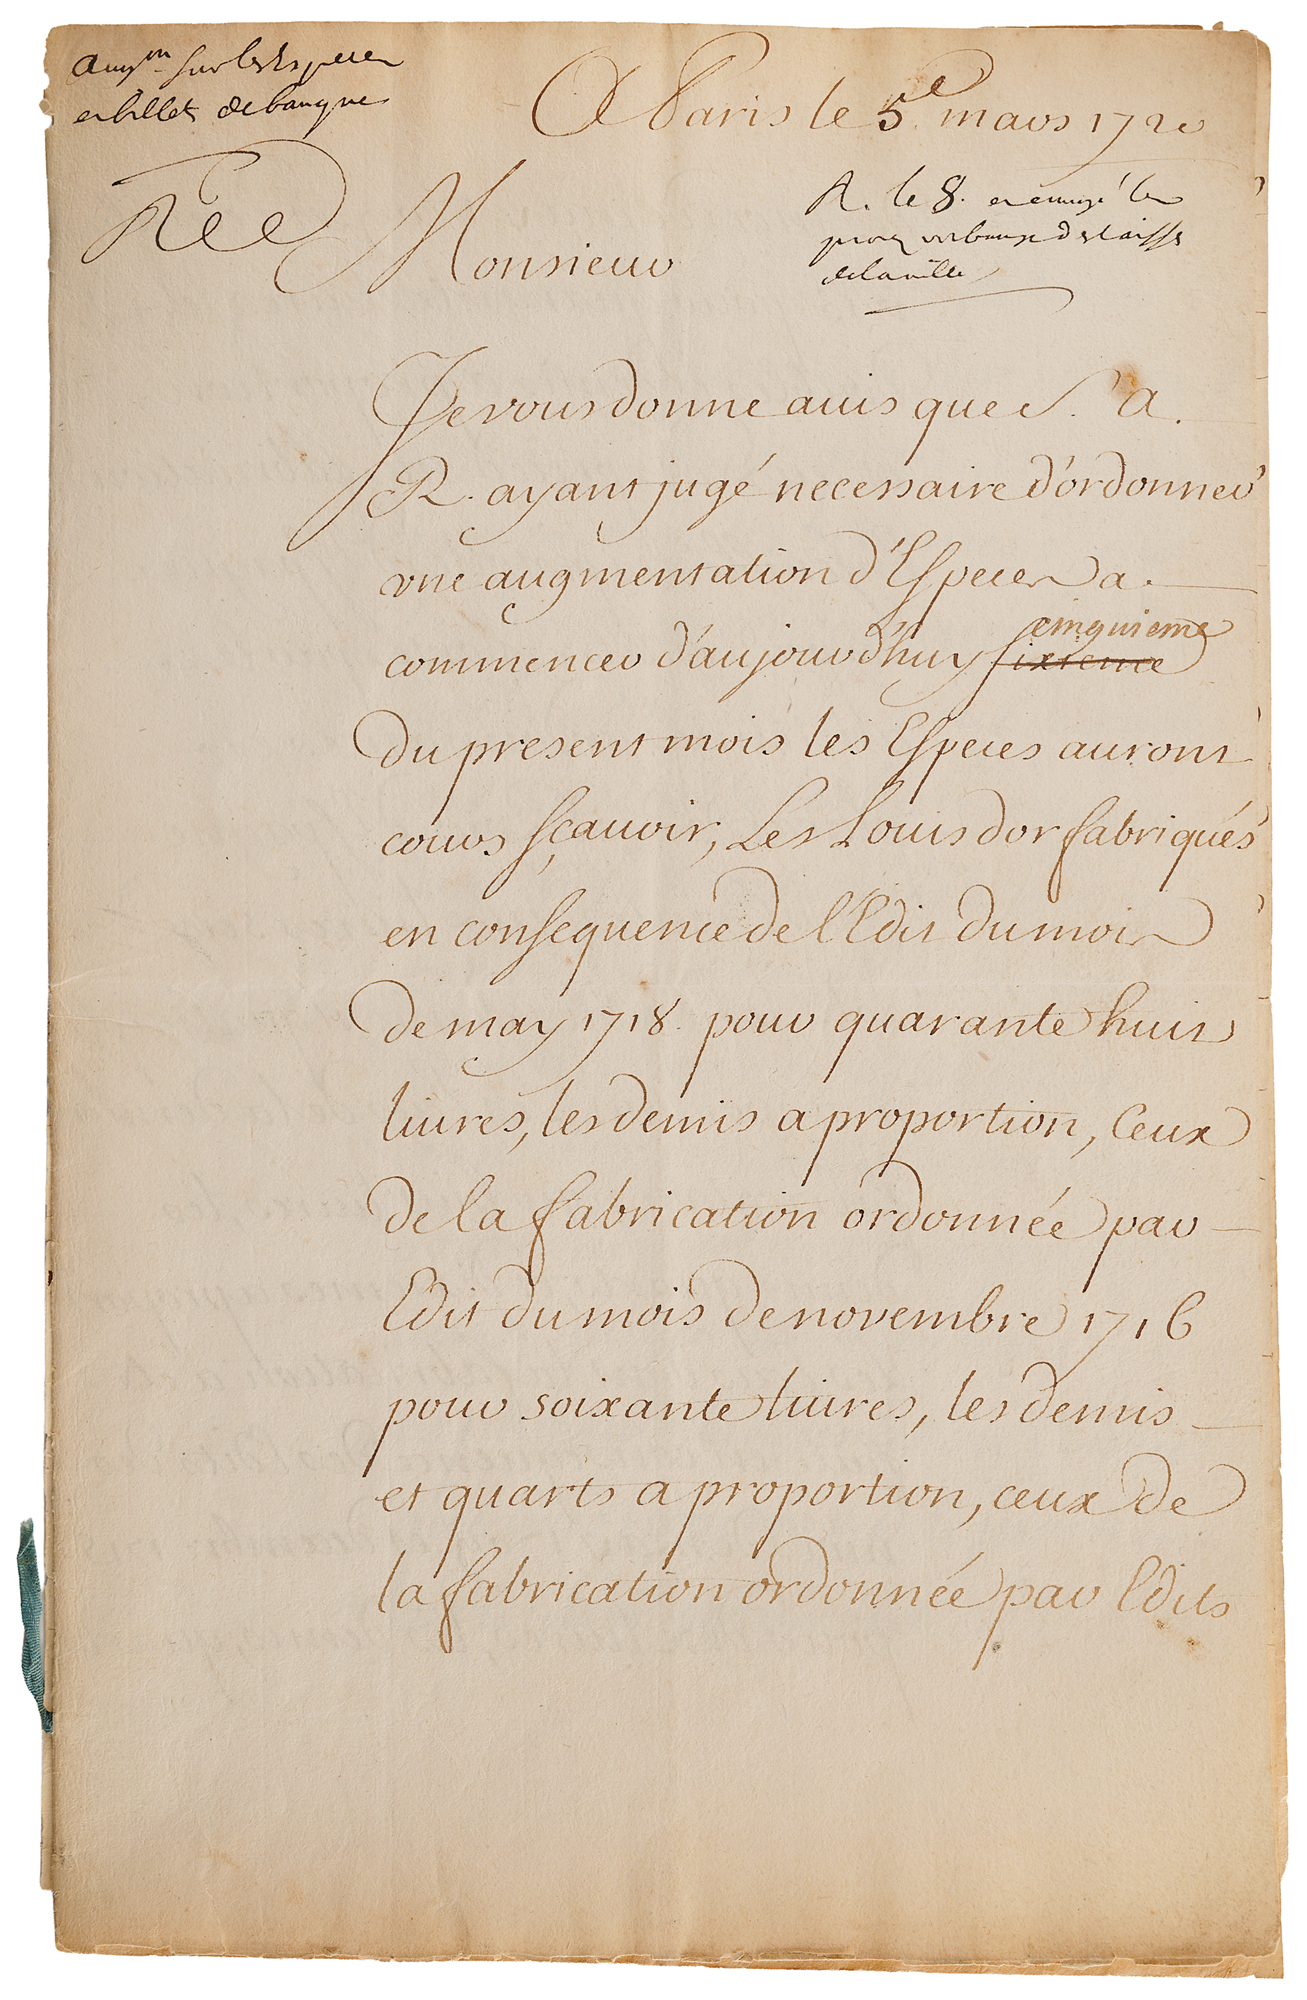 augm.on sur les Especes
et billets de banque
A Paris le 5.e mars 1720
Rée
Monsieur
R. le 8. et envoyé les
procez verbaux des caisses
de la ville
Je vous donne auis que S. A.
R. ayant jugé necessaire d'ordonner
vne augmentation d'Especes a
commencer d'aujourd'huy sixieme cinquieme
du present mois les Especes auront
cours sçauoir, Les Louis d'or fabriqués
en consequence de l'Edit du mois
de may 1718. pour quarante huit
liures, les demis a proportion, Ceux
de la fabrication ordonnée par
Edit du mois de novembre 1716
pour soixante liures, les demis
et quarts a proportion, ceux de
la fabrication ordonnée par Edits